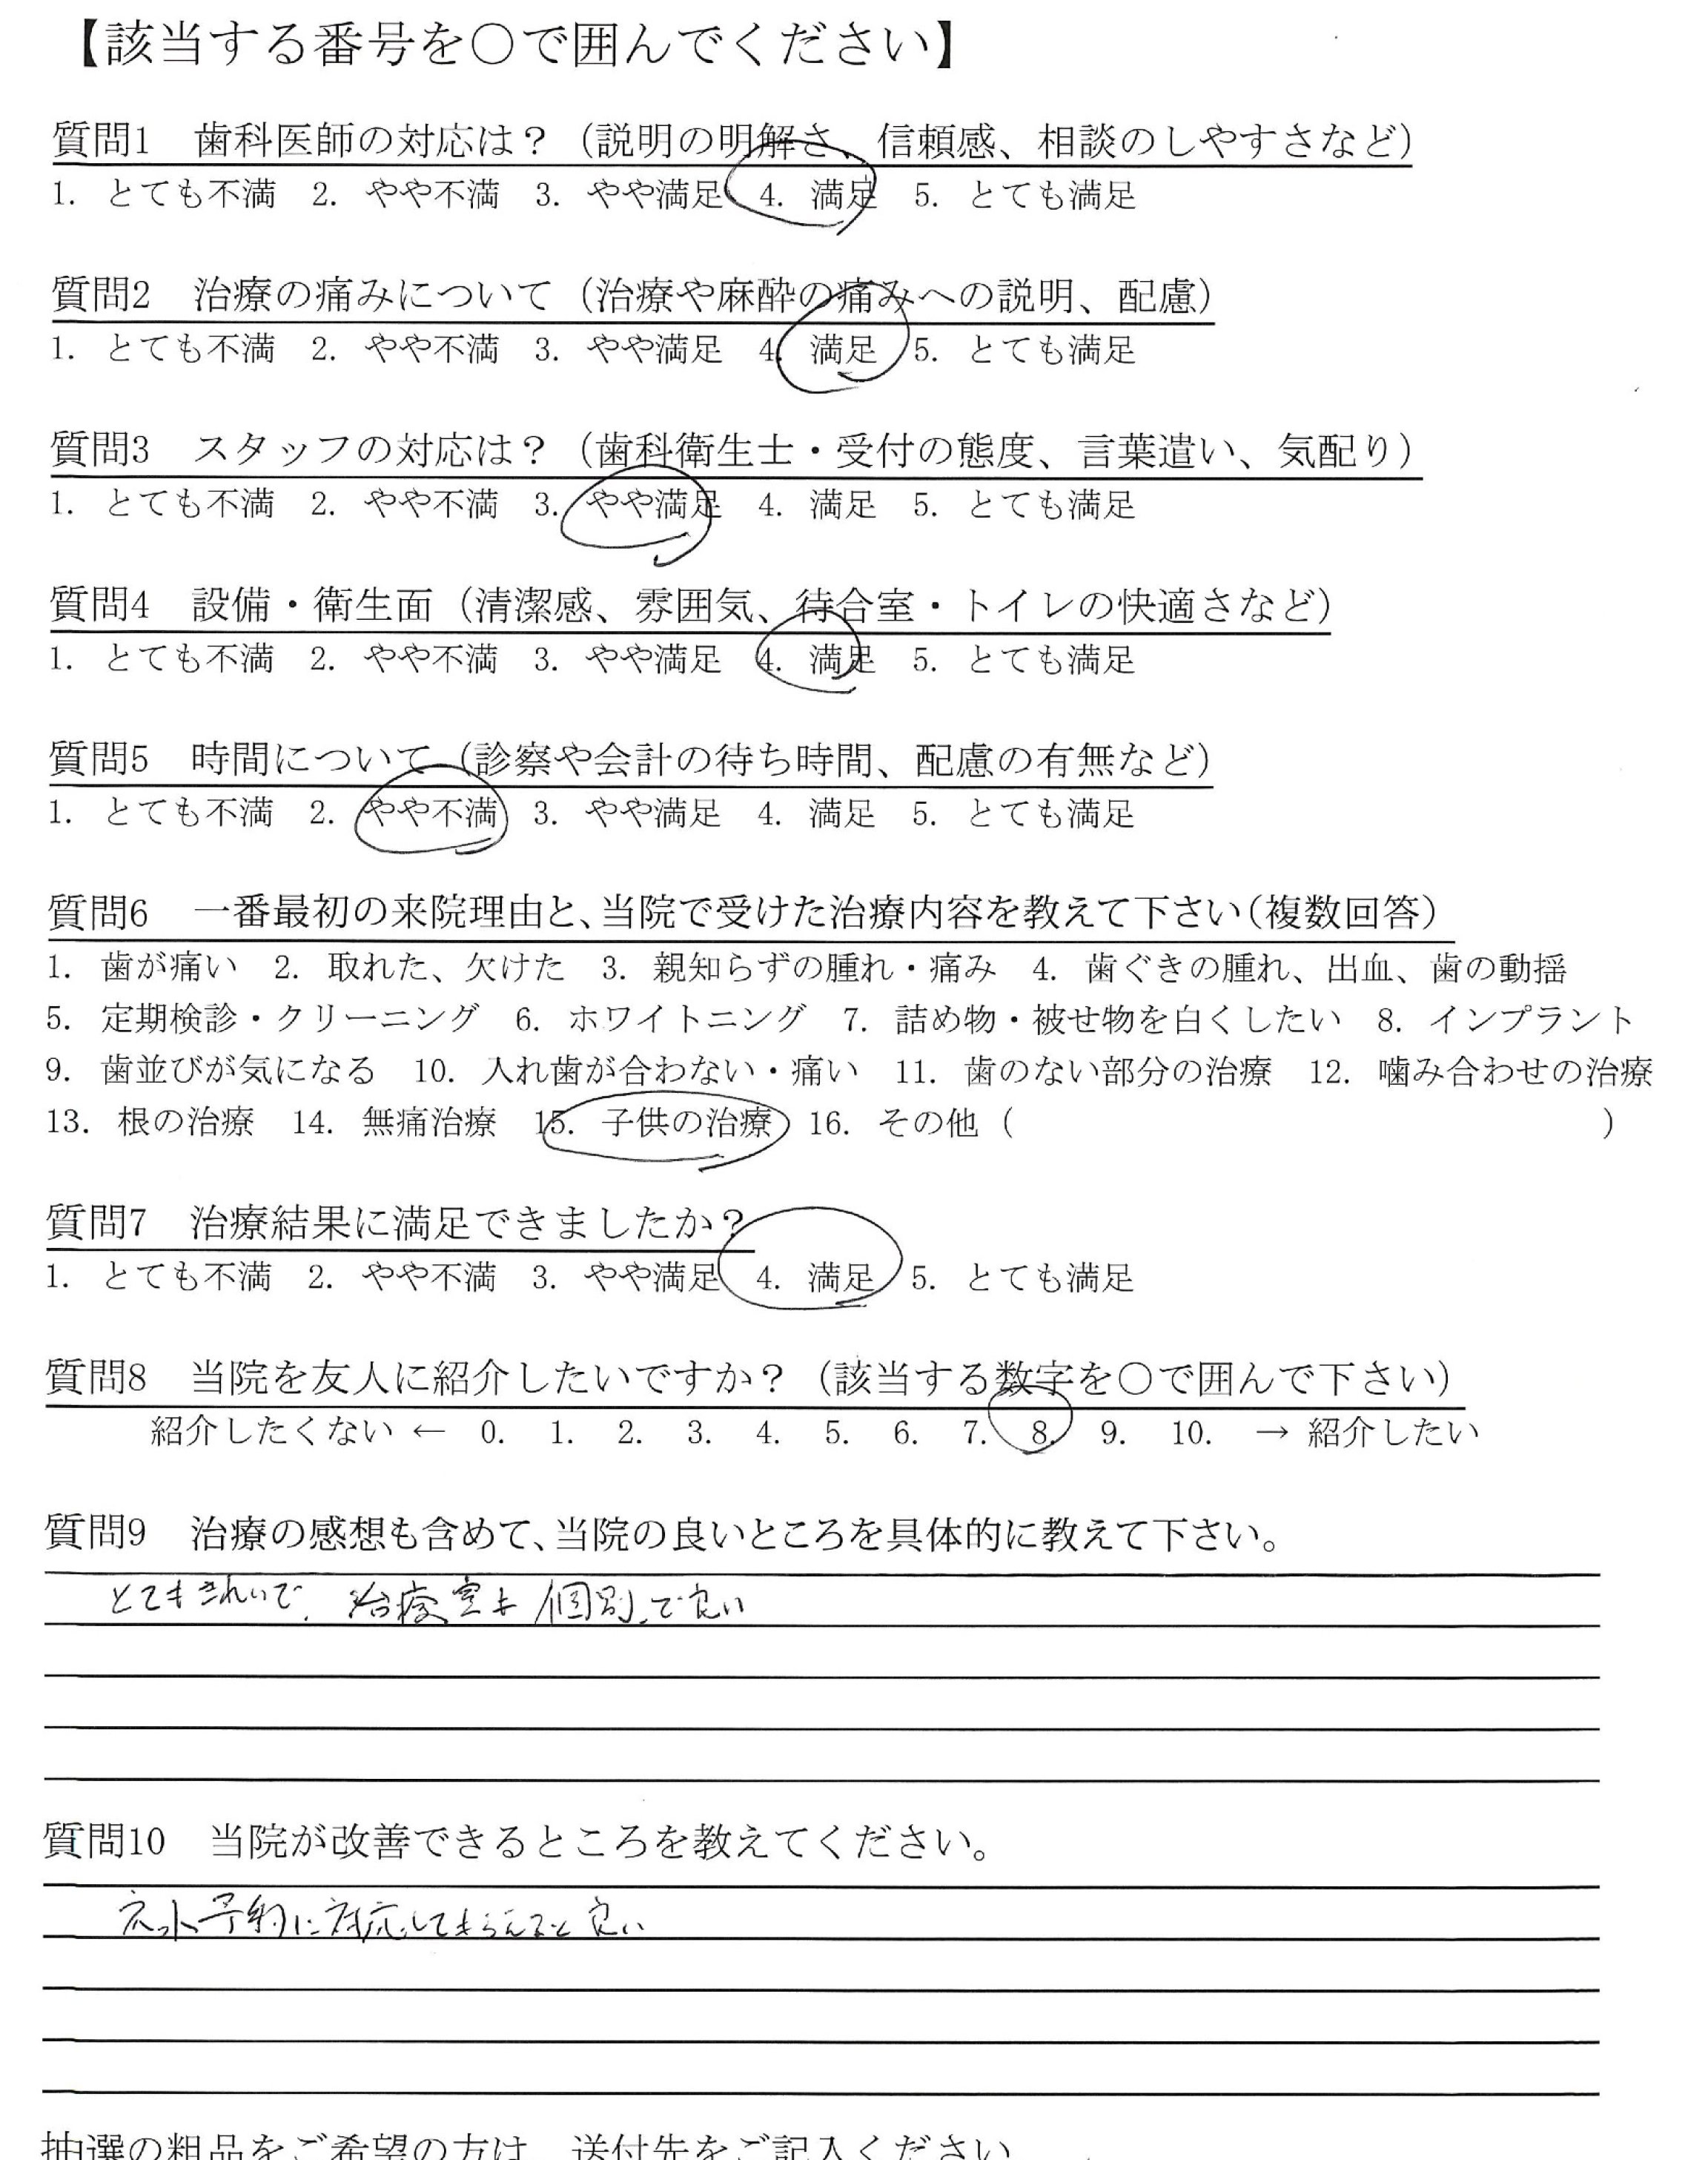 【該当する番号を〇で囲んでください】
質問1　歯科医師の対応は？（説明の明解さ、信頼感、相談のしやすさなど）
1. とても不満　2. やや不満　3. やや満足　4. 満足　5. とても満足
質問2　治療の痛みについて（治療や麻酔の痛みへの説明、配慮）
1. とても不満　2. やや不満　3. やや満足　4. 満足　5. とても満足
質問3　スタッフの対応は？（歯科衛生士・受付の態度、言葉遣い、気配り）
1. とても不満　2. やや不満　3. やや満足　4. 満足　5. とても満足
質問4　設備・衛生面（清潔感、雰囲気、待合室・トイレの快適さなど）
1. とても不満　2. やや不満　3. やや満足　4. 満足　5. とても満足
質問5　時間について（診察や会計の待ち時間、配慮の有無など）
1. とても不満　2. やや不満　3. やや満足　4. 満足　5. とても満足
質問6　一番最初の来院理由と、当院で受けた治療内容を教えて下さい（複数回答）
1. 歯が痛い　2. 取れた、欠けた　3. 親知らずの腫れ・痛み　4. 歯ぐきの腫れ、出血、歯の動揺
5. 定期検診・クリーニング　6. ホワイトニング　7. 詰め物・被せ物を白くしたい　8. インプラント
9. 歯並びが気になる　10. 入れ歯が合わない・痛い　11. 歯のない部分の治療　12. 噛み合わせの治療
13. 根の治療　14. 無痛治療　15. 子供の治療　16. その他（　　　　　　　　　　）
質問7　治療結果に満足できましたか？
1. とても不満　2. やや不満　3. やや満足　4. 満足　5. とても満足
質問8　当院を友人に紹介したいですか？（該当する数字を〇で囲んで下さい）
紹介したくない ← 0. 1. 2. 3. 4. 5. 6. 7. 8. 9. 10. → 紹介したい
質問9　治療の感想も含めて、当院の良いところを具体的に教えて下さい。
とてもきれいで、治療室も個別で良い
質問10　当院が改善できるところを教えてください。
ネット予約に対応してもらえると良い
抽選の粗品をご希望の方は、送付先をご記入ください